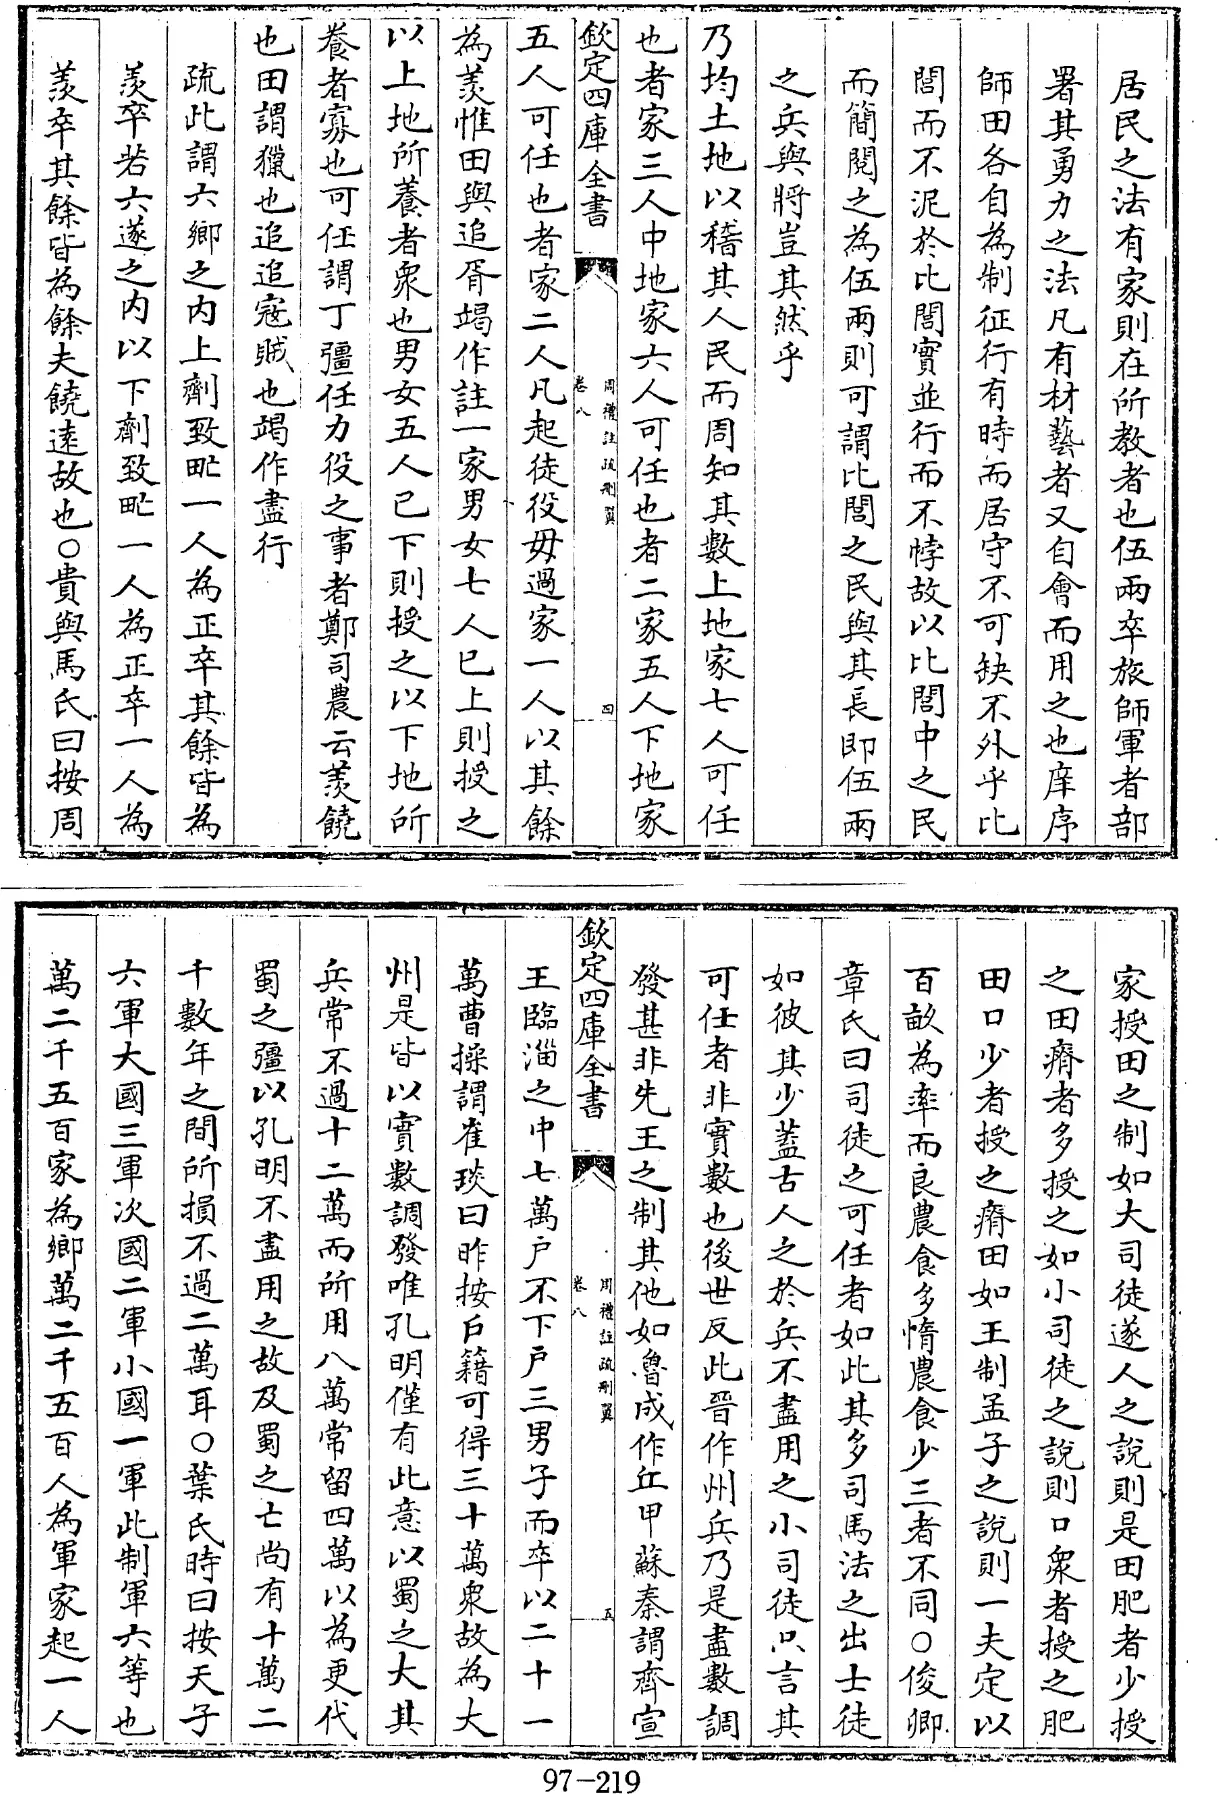 居民之法有家則在所教者也伍兩卒旅師軍者部
署其勇力之法凡有材藝者又自會而用之也庠序
師田各自為制征行有時而居守不可缺不外乎比
閭而不泥於比閭實並行而不悖故以比閭中之民
而簡閱之為伍兩則可謂比閭之民與其長即伍兩
之兵與將豈其然乎
乃均土地以稽其人民而周知其數上地家七人可任
也者家三人中地家六人可任也者二家五人下地家
欽定四庫全書
周禮註疏刪翼
卷八
四
五人可任也者家二人凡起徒役毋過家一人以其餘
為羨惟田與追胥竭作註一家男女七人已上則授之
以上地所養者衆也男女五人已下則授之以下地所
養者寡也可任謂丁彊任力役之事者鄭司農云羨饒
也田謂獵也追追寇賊也竭作盡行
疏此謂六鄉之内上劑致甿一人為正卒其餘皆為
羨卒若六遂之内以下劑致甿一人為正卒一人為
羨卒其餘皆為餘夫饒遠故也○貴與馬氏曰按周
家授田之制如大司徒遂人之說則是田肥者少授
之田瘠者多授之如小司徒之說則口衆者授之肥
田口少者授之瘠田如王制孟子之說則一夫定以
百畝為率而良農食多惰農食少三者不同○俊卿
章氏曰司徒之可任者如此其多司馬法之出士徒
如彼其少蓋古人之於兵不盡用之小司徒只言其
可任者非實數也後世反此晉作州兵乃是盡數調
發甚非先王之制其他如魯成作丘甲蘇秦謂齊宣
欽定四庫全書
周禮註疏刪翼
卷八
五
王臨淄之中七萬户不下户三男子而卒以二十一
萬曹操謂崔琰曰昨按戶籍可得三十萬衆故為大
州是皆以實數調發唯孔明僅有此意以蜀之大其
兵常不過十二萬而所用八萬常留四萬以為更代
蜀之彊以孔明不盡用之故及蜀之亡尚有十萬二
千數年之間所損不過二萬耳○葉氏時曰按天子
六軍大國三軍次國二軍小國一軍此制軍六等也
萬二千五百家為鄉萬二千五百人為軍家起一人
97-219